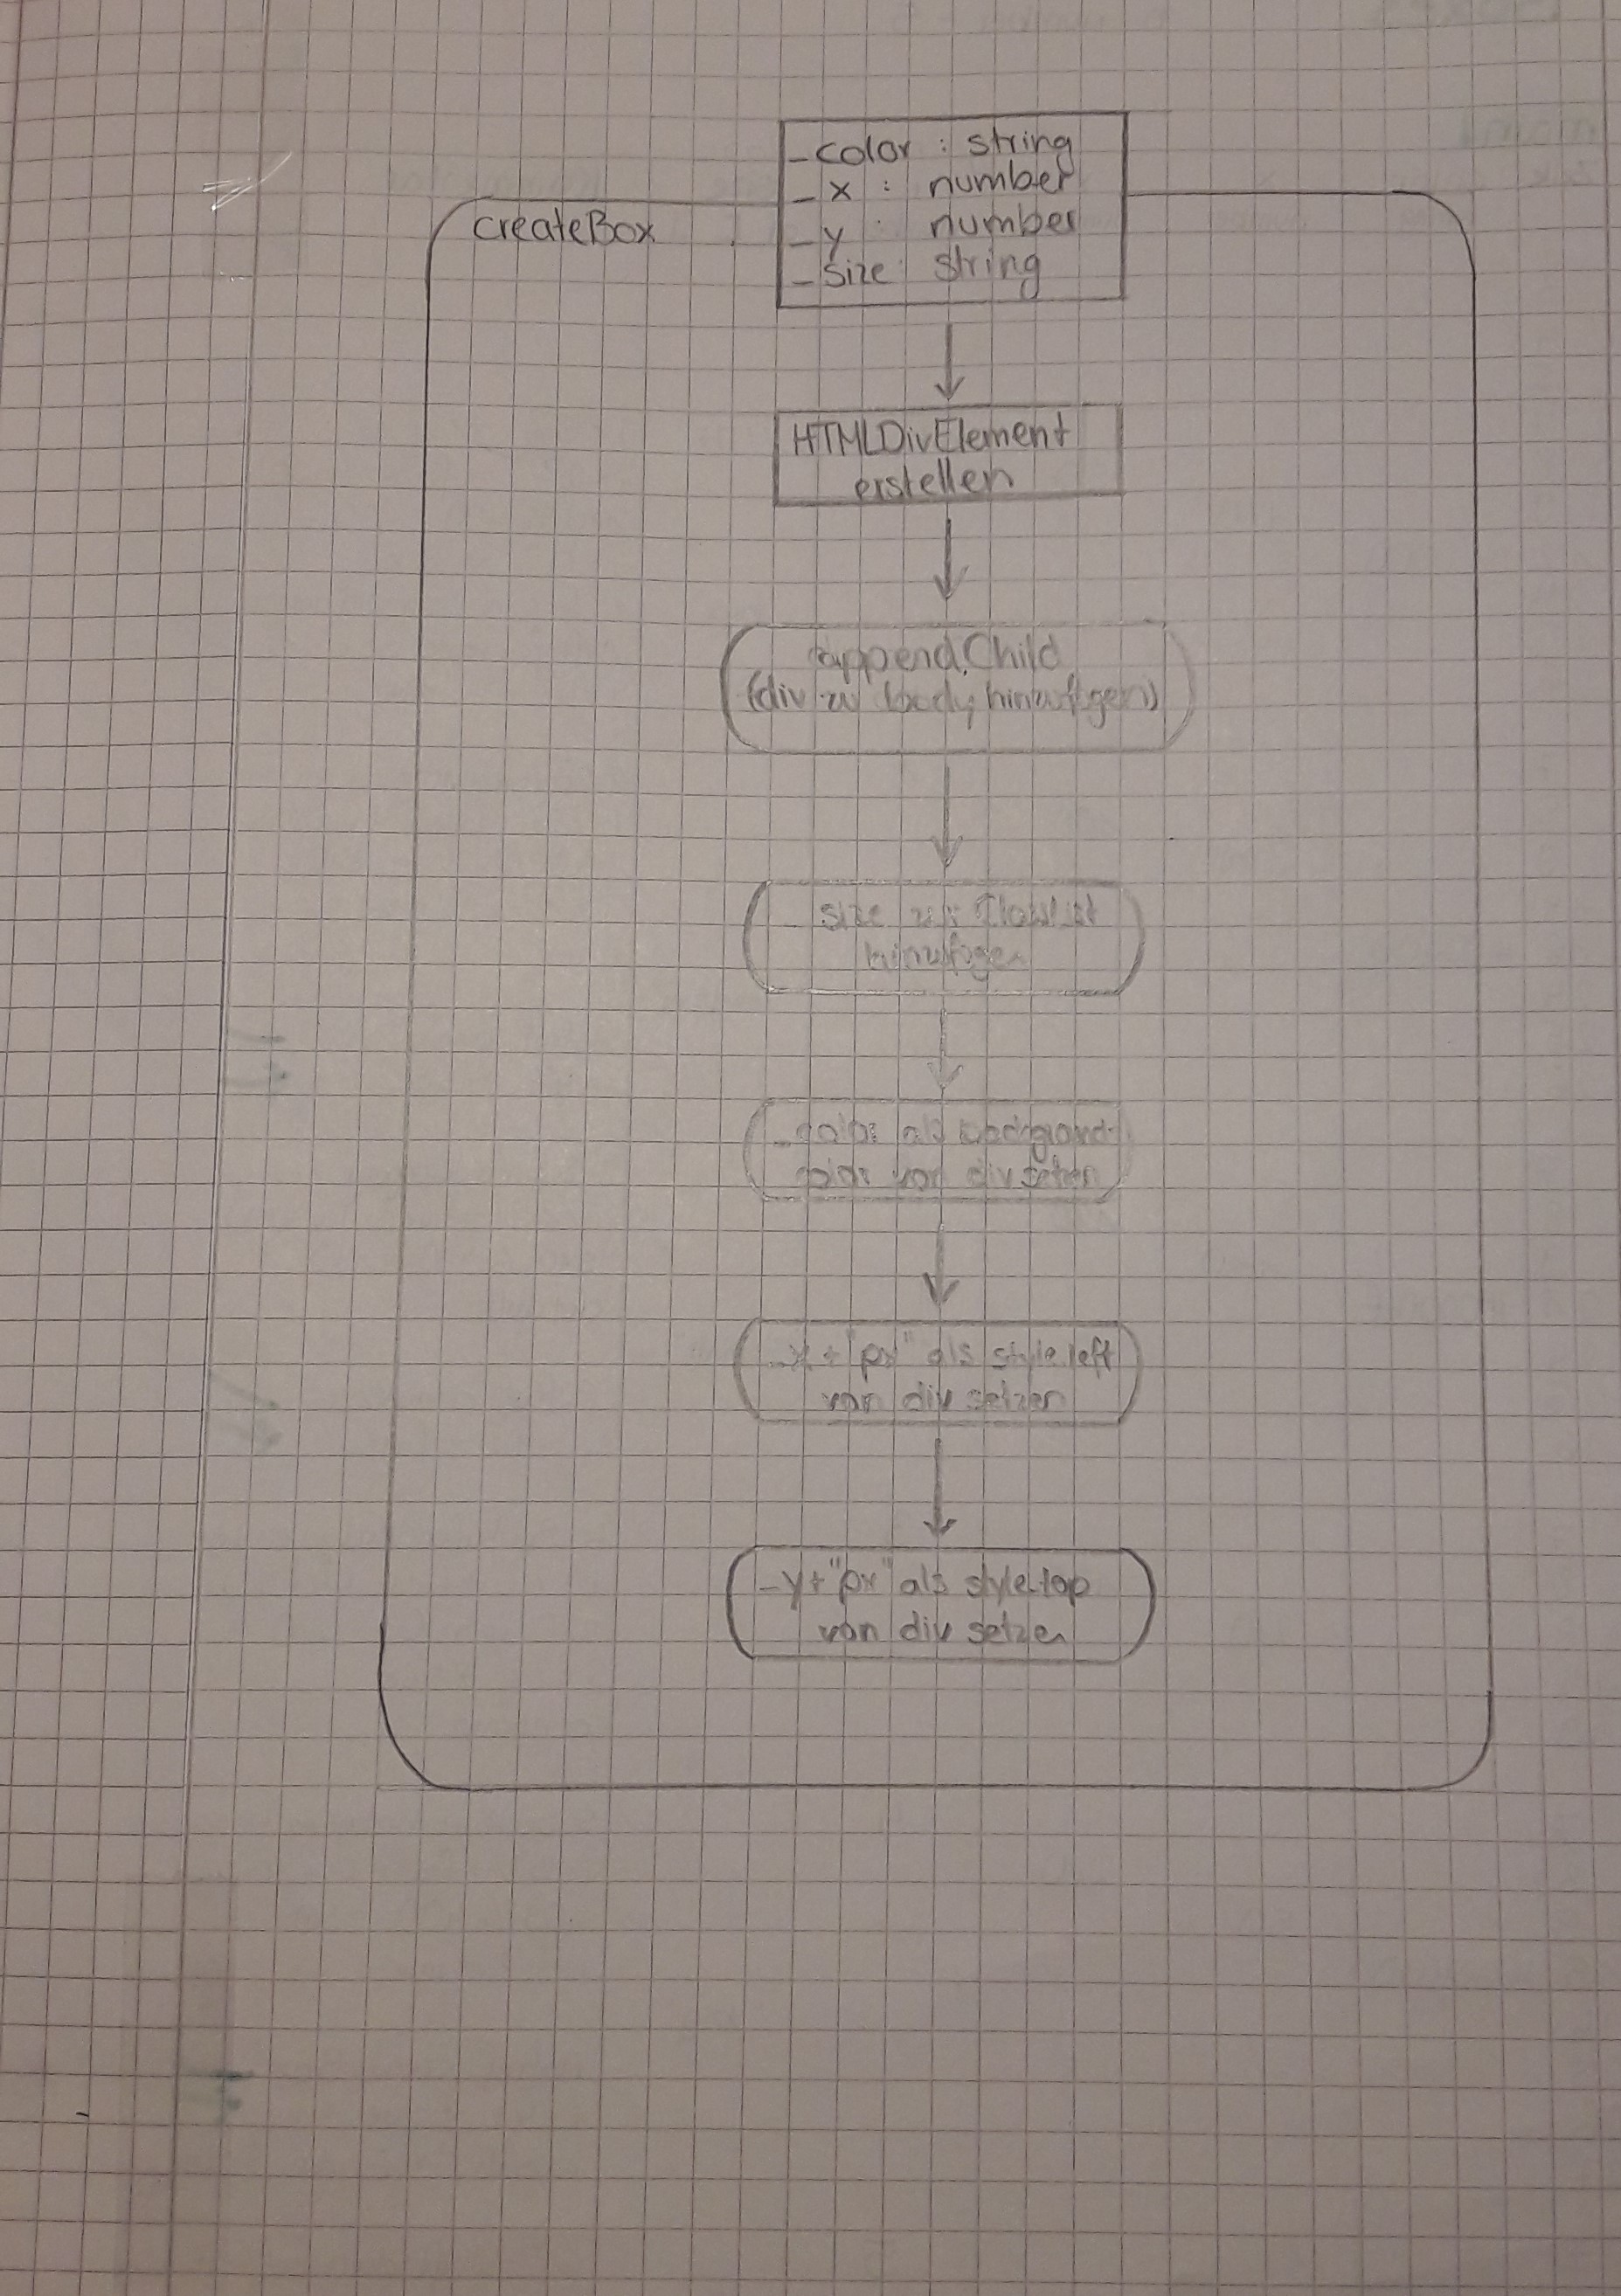 createBox
_color : string
_x : number
_y : number
_size : string
HTMLDivElement
erstellen
appendChild
(div zu body hinzufügen)
size zur
hinzufügen
_color als background-
color von div setzen
_x + "px" als style.left
von div setzen
_y + "px" als style.top
von div setzen